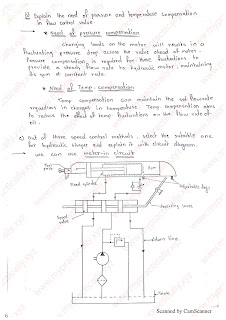 Explain the need of pressure and temperature compensation
in flow control valve
* Need of pressure compensation
Changing loads on the motor will results in a
fluctuating pressure drop across the valve ahead of motor.
Pressure compensation is required for these fluctuations to
provide a steady flow rate to hydraulic motor, maintaining
its spin at constant rate.
* Need of Temp. compensation
Temp compensation can maintain the set flow rate
regardless in changes in temperature. Temp compensation aims
to reduce the effect of temp fluctuations on the flow rate of
oil.
c) Out of three speed control methods, select the suitable one
for hydraulic shaper and explain it with circuit diagram.
we can use meter-in circuit
Ram
Feed cylinder
Adjustable dogs
Reversing lever
Return line
Tank
Scanned by CamScanner